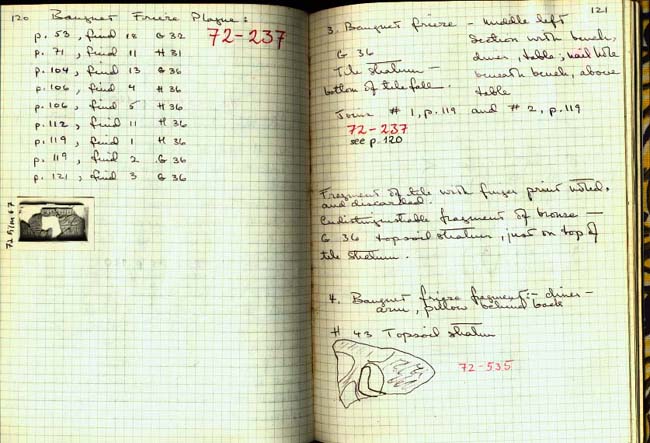 120 Banquet Frieze Plaque:
72-237
p. 53, find 18 G 32
p. 71, find 11 H 31
p. 104, find 13 G 36
p. 106, find 4 H 36
p. 106, find 5 H 36
p. 112, find 11 H 36
p. 119, find 1 H 36
p. 119, find 2 G 36
p. 121, find 3 G 36
72 film 67
121
3. Banquet frieze - middle left
Section with bench,
diner, table, nail hole
beneath bench, above
table
G 36
Tile stratum -
bottom of tile fall.
Joins #1, p. 119 and #2, p. 119
72-237
see p. 120
Fragment of tile with finger print noted,
and discarded.
Indistinguishable fragment of bronze -
G 36 topsoil stratum, just on top of
tile stratum.
4. Banquet frieze fragment - diner -
arm, pillow behind back
H 43 Topsoil stratum
72-535